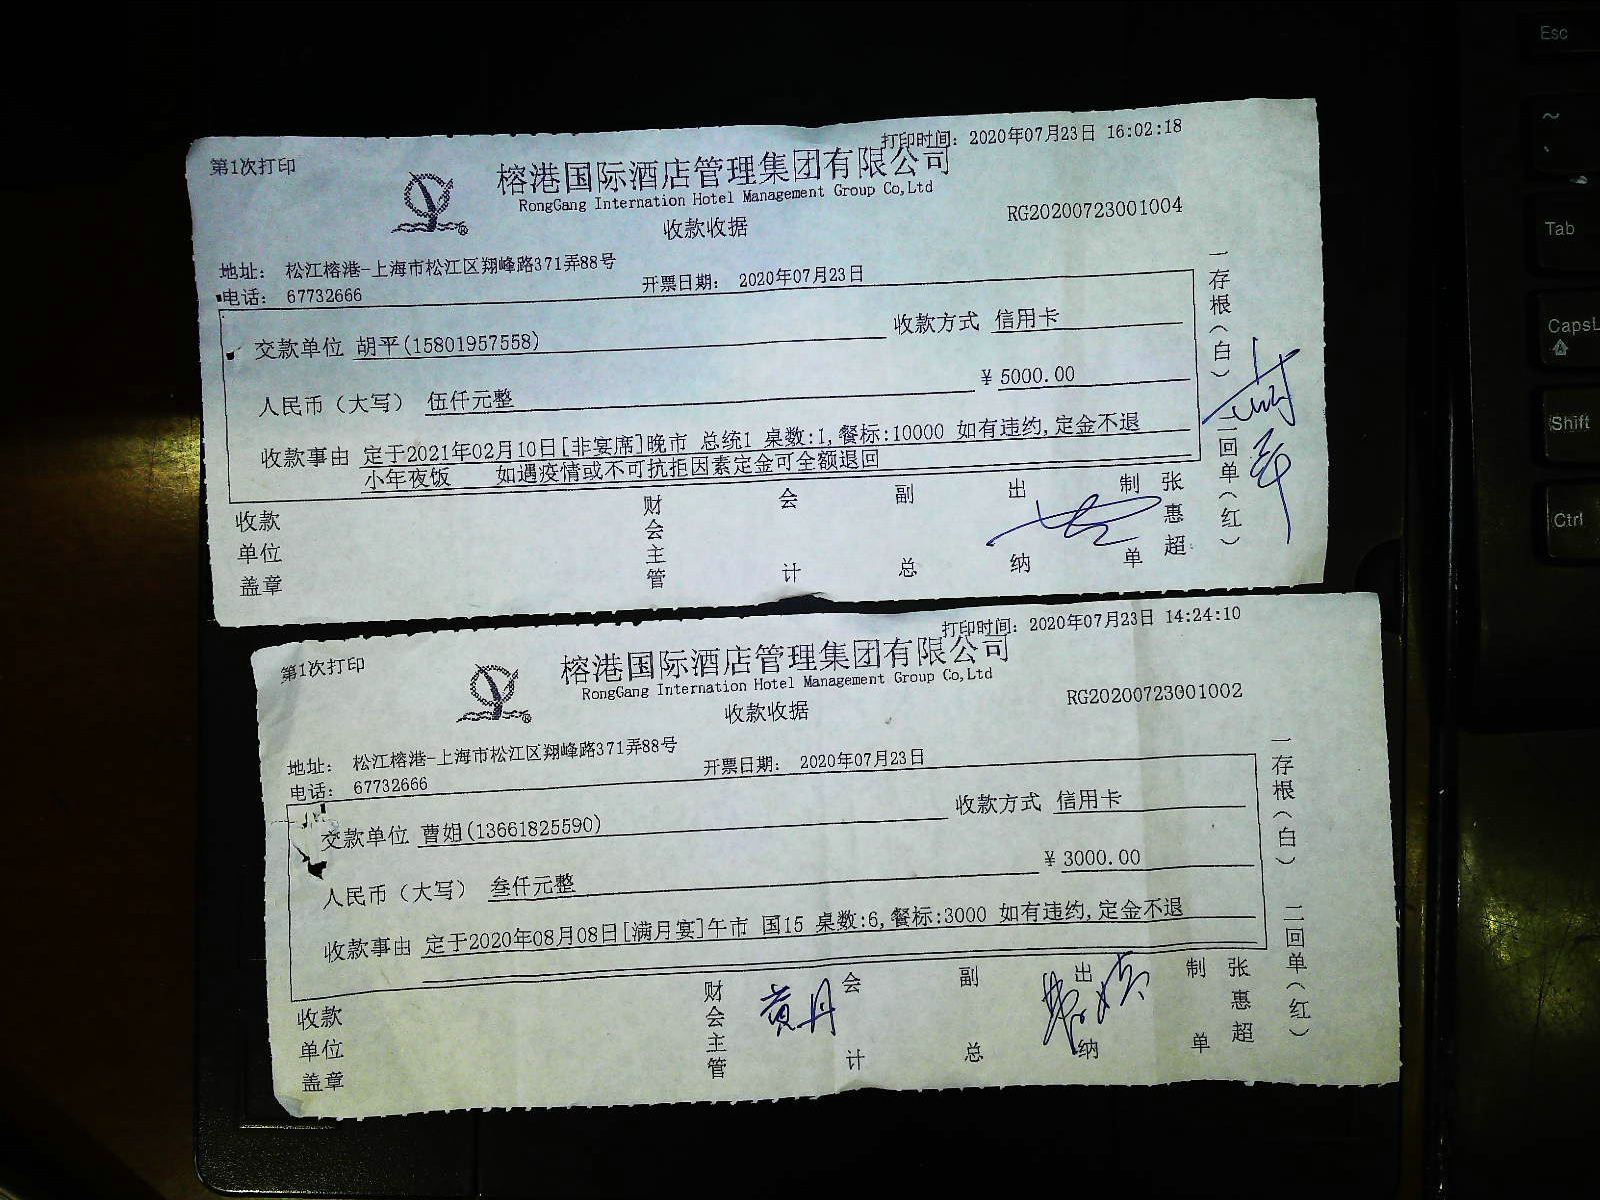 第1次打印
打印时间: 2020年07月23日 16:02:18
榕港国际酒店管理集团有限公司
RongGang Internation Hotel Management Group Co,Ltd
收款收据
RG20200723001004
地址: 松江榕港-上海市松江区翔峰路371弄88号
电话: 67732666
开票日期: 2020年07月23日
交款单位 胡平(15801957558)
收款方式 信用卡
人民币（大写） 伍仟元整
¥ 5000.00
收款事由 定于2021年02月10日[非宴席]晚市 总统1 桌数:1,餐标:10000 如有违约,定金不退
小年夜饭 如遇疫情或不可抗拒因素定金可全额退回
收款单位盖章
财会主管
会计
副总
出纳
制单
张惠超
一存根（白）
二回单（红）
第1次打印
打印时间: 2020年07月23日 14:24:10
榕港国际酒店管理集团有限公司
RongGang Internation Hotel Management Group Co,Ltd
收款收据
RG20200723001002
地址: 松江榕港-上海市松江区翔峰路371弄88号
电话: 67732666
开票日期: 2020年07月23日
交款单位 曹姐(13661825590)
收款方式 信用卡
人民币（大写） 叁仟元整
¥ 3000.00
收款事由 定于2020年08月08日[满月宴]午市 国15 桌数:6,餐标:3000 如有违约,定金不退
收款单位盖章
财会主管
黄丹
会计
副总
出纳
制单
张惠超
一存根（白）
二回单（红）
Esc
~
Tab
CapsL
Shift
Ctrl